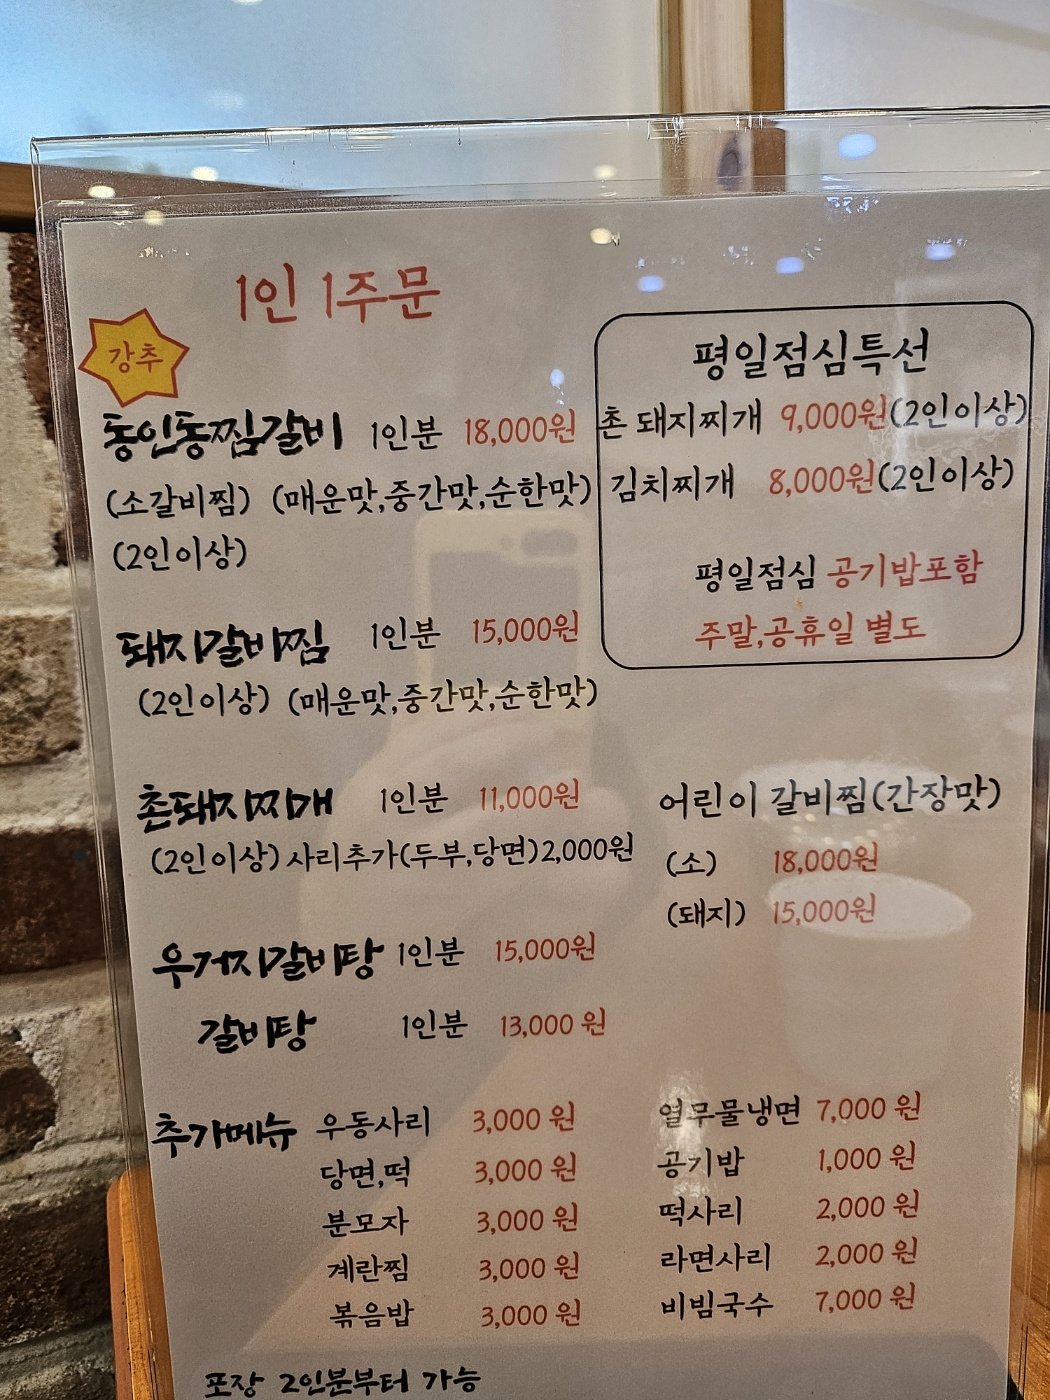 1인 1주문
강추
통인동찜갈비 1인분 18,000원
(소갈비찜) (매운맛,중간맛,순한맛)
(2인이상)
돼지갈비찜 1인분 15,000원
(2인이상) (매운맛,중간맛,순한맛)
촌돼지찌개 1인분 11,000원
(2인이상) 사리추가(두부,당면)2,000원
우거지갈비탕 1인분 15,000원
갈비탕 1인분 13,000 원
평일점심특선
촌 돼지찌개 9,000원(2인이상)
김치찌개 8,000원(2인이상)
평일점심 공기밥포함
주말,공휴일 별도
어린이 갈비찜(간장맛)
(소) 18,000원
(돼지) 15,000원
추가메뉴 우동사리 3,000 원
당면,떡 3,000 원
분모자 3,000 원
계란찜 3,000 원
볶음밥 3,000 원
열무물냉면 7,000 원
공기밥 1,000 원
떡사리 2,000 원
라면사리 2,000 원
비빔국수 7,000 원
포장 2인분부터 가능